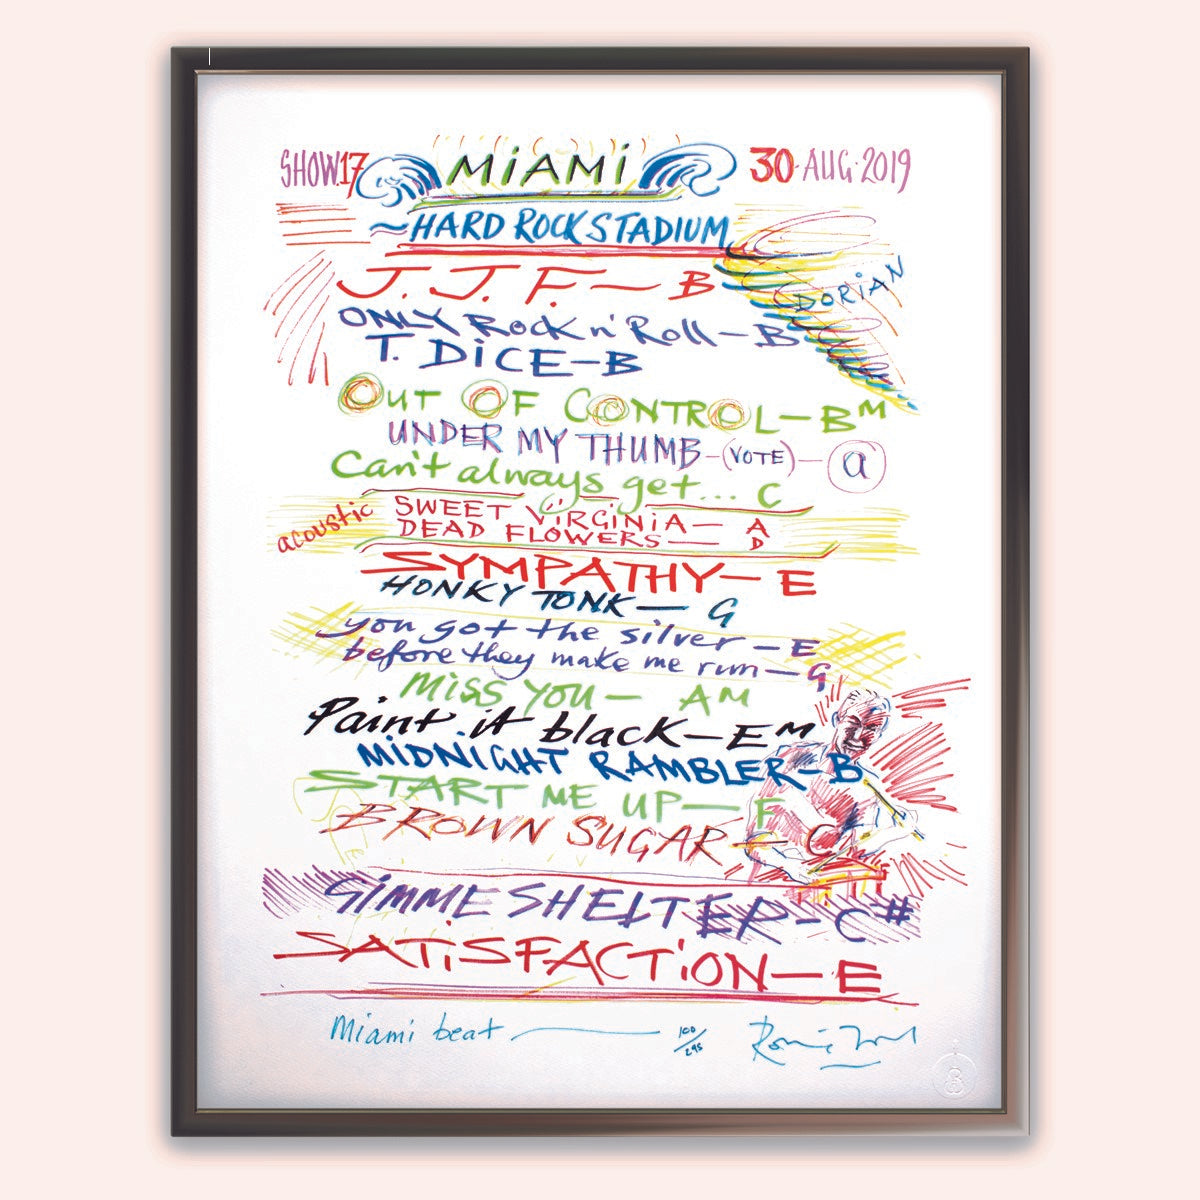 SHOW.17 MiAMi 30·AUG·2019
~HARD ROCK STADIUM
DORiAN
J.J.F.~B
ONLY Rock n' Roll—B
T. DiCE—B
OUT OF CONTROL—BM
UNDER MY THUMB-(VOTE)—a
Can't always get... C
acoustic
SWEET ViRGiNiA—A
DEAD FLOWERS—D
SYMPATHY—E
HONKY TONK—G
you got the silver—E
before they make me run—G
Miss you—AM
Paint it black—EM
MiDNiGHT RAMBLER—B
START ME UP—F
BROWN SUGAR—C
GiMME SHELTER—C#
SATiSFACTiON—E
Miami beat 100/295 Ronnie Wood